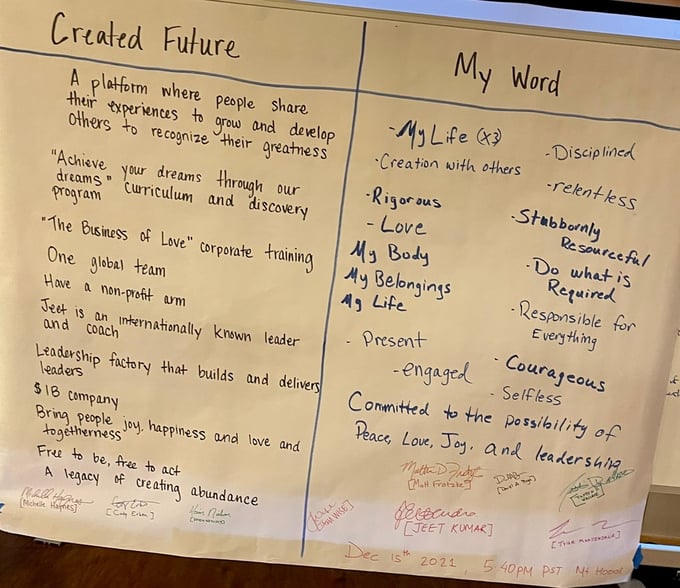 Created Future
A platform where people share
their experiences to grow and develop
others to recognize their greatness
"Achieve your dreams through our
dreams" curriculum and discovery
program
"The Business of Love" corporate training
One global team
Have a non-profit arm
Jeet is an internationally known leader
and coach
Leadership factory that builds and delivers
leaders
$1B company
Bring people joy, happiness and love and
togetherness
Free to be, free to act
A legacy of creating abundance
[Michelle Haynes]
My Word
- My Life (x3)
· Creation with others
- Rigorous
- Love
My Body
My Belongings
My Life
- Present
- engaged
- Disciplined
- relentless
- Stubbornly
Resourceful
· Do what is
Required
· Responsible for
Everything
· Courageous
· Selfless
Committed to the possibility of
Peace, Love, Joy, and leadership
[JEET KUMAR]
Dec 15th 2021, 5:40PM PST Mt Hood